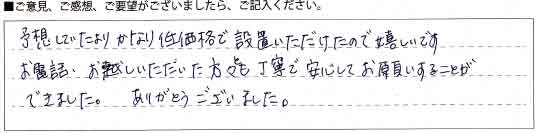 ■ご意見、ご感想、ご要望がございましたら、ご記入ください。
予想していたよりかなり低価格で設置いただけたので嬉しいです
お電話・お越しいただいた方々も丁寧で安心してお願いすることが
できました。 ありがとうございました。